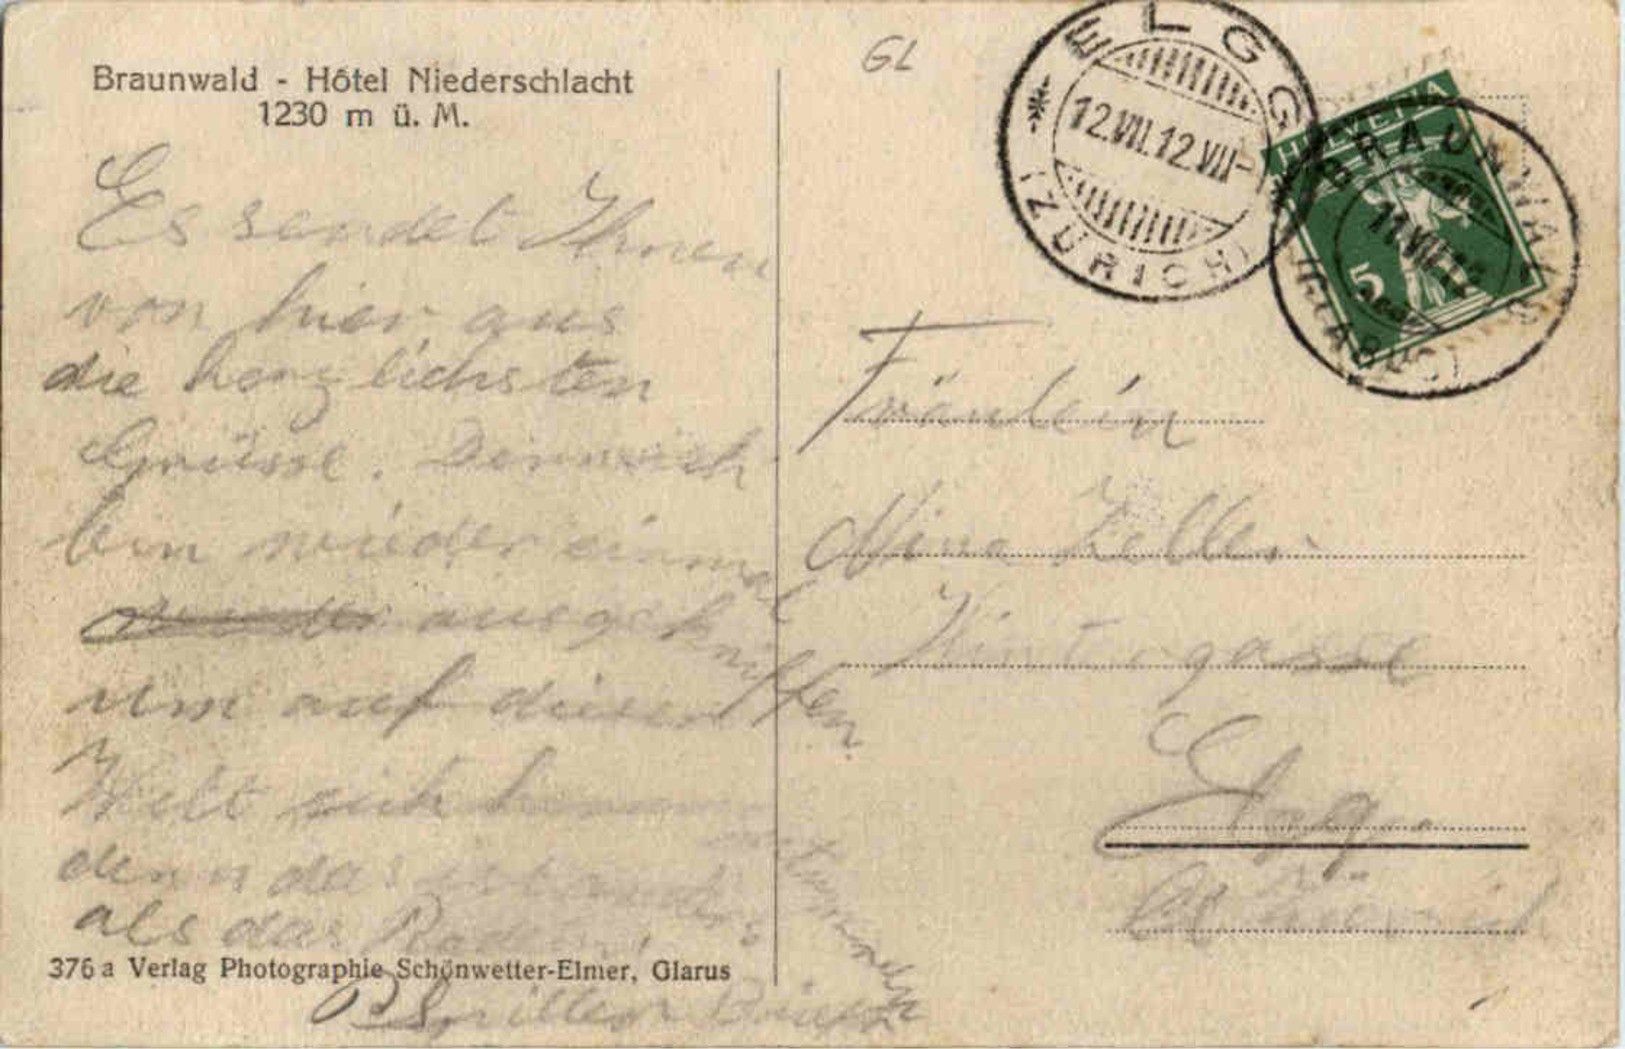 Braunwald - Hôtel Niederschlacht
1230 m ü. M.
GL
ELGG
12.VII.12.VII-
(ZÜRICH)
HELVETIA
5
BRAUNWALD
11.VII.12
(GLARUS)
Es sendet Ihnen
von hier aus
die herzlichsten
Grüsse. Dennoch
bin wieder einmal
ausgekniffen
um auf dieser
Welt sich herum
denn das ist anders
als das
376 a Verlag Photographie Schönwetter-Elmer, Glarus
Fräulein
Nina Zeller
Hintergasse
Elgg.
Kt. Zürich